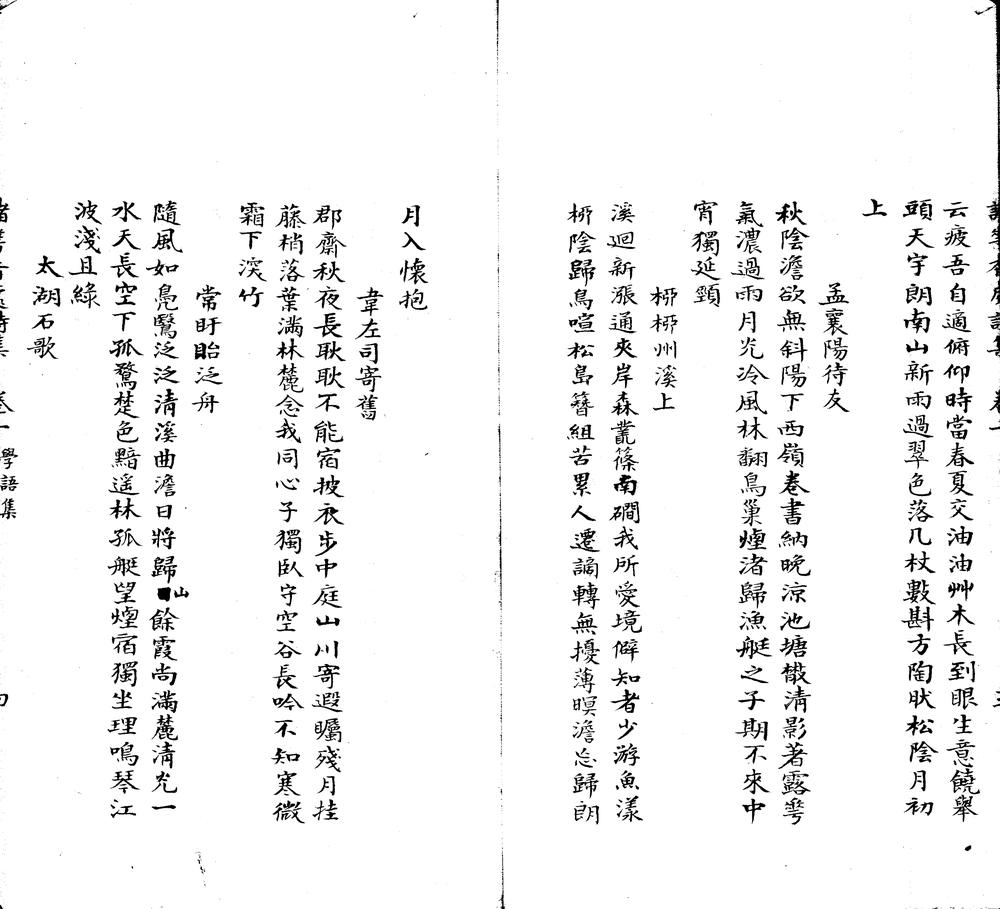 云疲吾自適俯仰時當春夏交油油艸木長到眼生意饒舉
頭天宇朗南山新雨過翠色落几杖數斟方陶肰松陰月初
上
孟襄陽待友
秋陰澹欲無斜陽下西嶺卷書納晚涼池塘散清影著露芳
氣濃過雨月光冷風林翻鳥巢煙渚歸漁艇之子期不來中
宵獨延頸
桺桺州溪上
溪迴新漲通夾岸森叢篠南磵我所愛境僻知者少游魚漾
桺陰歸鳥喧松島簪組苦累人遷謫轉無擾薄暝澹忘歸朗
月入懷抱
韋左司寄舊
郡齋秋夜長耿耿不能宿披衣步中庭山川寄遐矚殘月挂
藤梢落葉滿林麓念我同心子獨臥守空谷長吟不知寒微
霜下深竹
常盱眙泛舟
隨風如鳧鷖泛泛清溪曲澹日將歸山餘霞尚滿麓清光一
水天長空下孤鶩楚色黯遥林孤艇望煙宿獨坐理鳴琴江
波淺且綠
太湖石歌
卷一 學語集